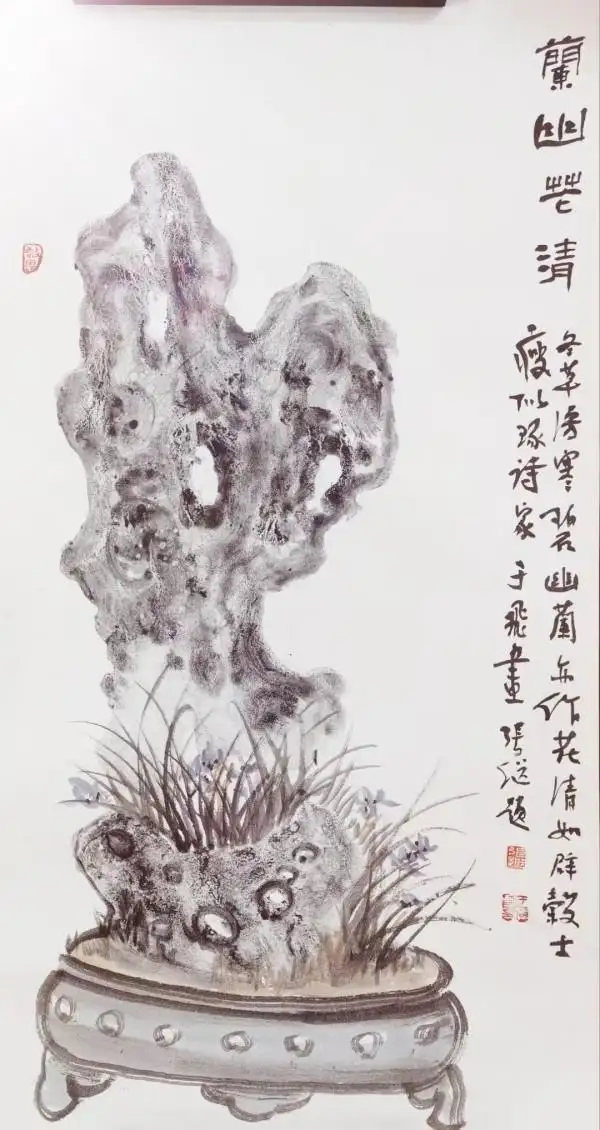 蘭幽花清
冬草漫寒碧幽蘭亦作花清如辟穀士
瘦似琢詩家 于飛畫 張繼題